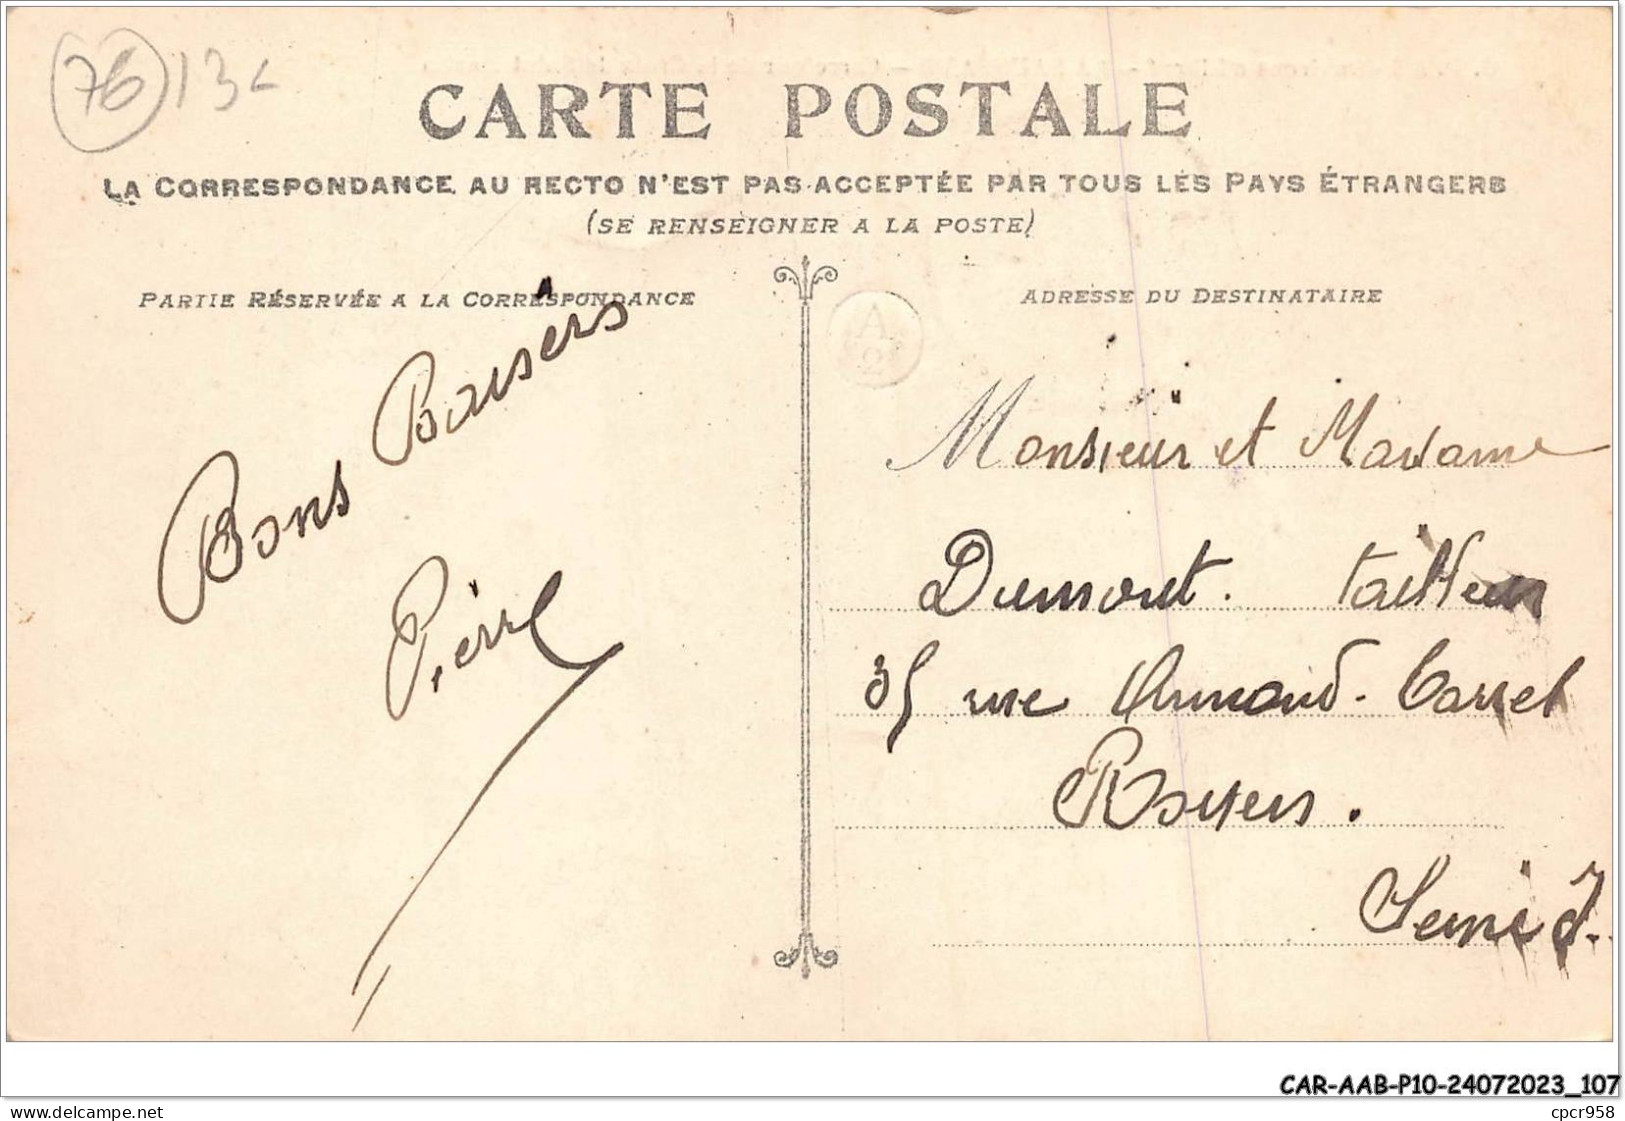 76 13c
CARTE POSTALE
LA CORRESPONDANCE AU RECTO N'EST PAS ACCEPTÉE PAR TOUS LES PAYS ÉTRANGERS
(SE RENSEIGNER A LA POSTE)
PARTIE RÉSERVÉE A LA CORRESPONDANCE
Bons Baisers
Pierre
ADRESSE DU DESTINATAIRE
A
2
Monsieur et Madame
Dumont. tailleur
35 rue Armand-Carrel
Rouen.
Seine I.
CAR-AAB-P10-24072023_107
www.delcampe.net
cpcr958